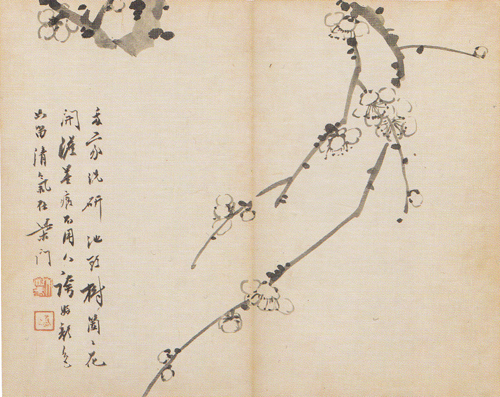 吾家洗研池頭樹箇々花
開澹墨痕不用人誇好顏色
只留清氣在柴門